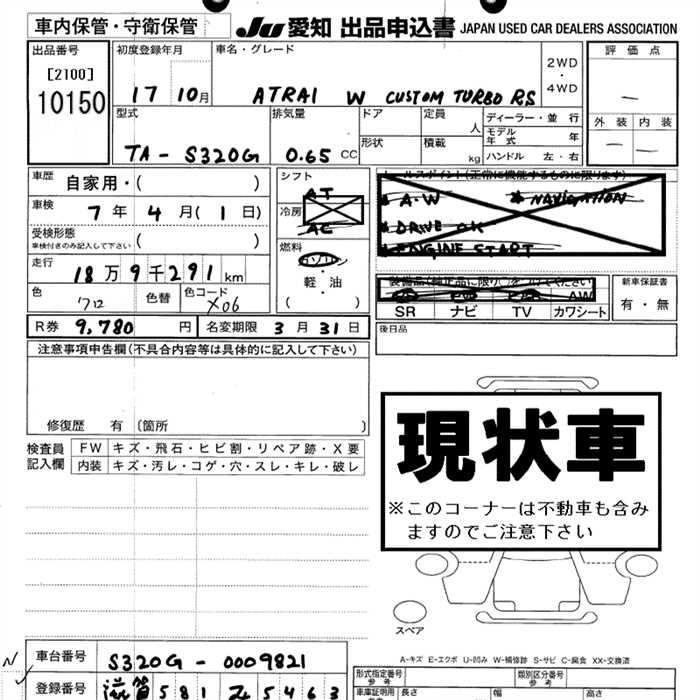 車内保管・守衛保管
JU 愛知 出品申込書 JAPAN USED CAR DEALERS ASSOCIATION
出品番号 初度登録年月 車名・グレード 2WD・4WD 評価点
[2100]
10150
17 10月 ATRAI W CUSTOM TURBO RS
型式 排気量 ドア 定員 人 ディーラー・並行 外装 内装
モデル年式 年
形状 積載 kg ハンドル 左・右
TA-S320G 0.65 CC
車歴 自家用・( ) シフト AT
車検 7年 4月(1日) 冷房 AC
A・W ※NAVIGATION
DRIVE OK
ENGINE START
受検形態 車検付きのみ記入して下さい ( )
燃料 ガソリン
軽・油
( )
走行 18万9千291km
色 クロ 色替 色コード X06
AW
SR ナビ TV カワシート
新車保証書
有・無
R券 9,780円 名変期限 3月31日
後日品
注意事項申告欄(不具合内容等は具体的に記入して下さい)
修復歴 有 〔箇所 〕
検査員記入欄 FW キズ・飛石・ヒビ割・リペア跡・X要
内装 キズ・汚レ・コゲ・穴・スレ・キレ・破レ
現状車
※このコーナーは不動車も含み
ますのでご注意下さい
スペア
A-キズ E-エクボ U-凹み W-補修跡 S-サビ C-腐食 XX-交換済
車台番号 S320G-0009821
登録番号 滋賀 581 5463
形式指定番号 参考 類別区分番号 参考
車庫証明用 長さ 幅 高さ